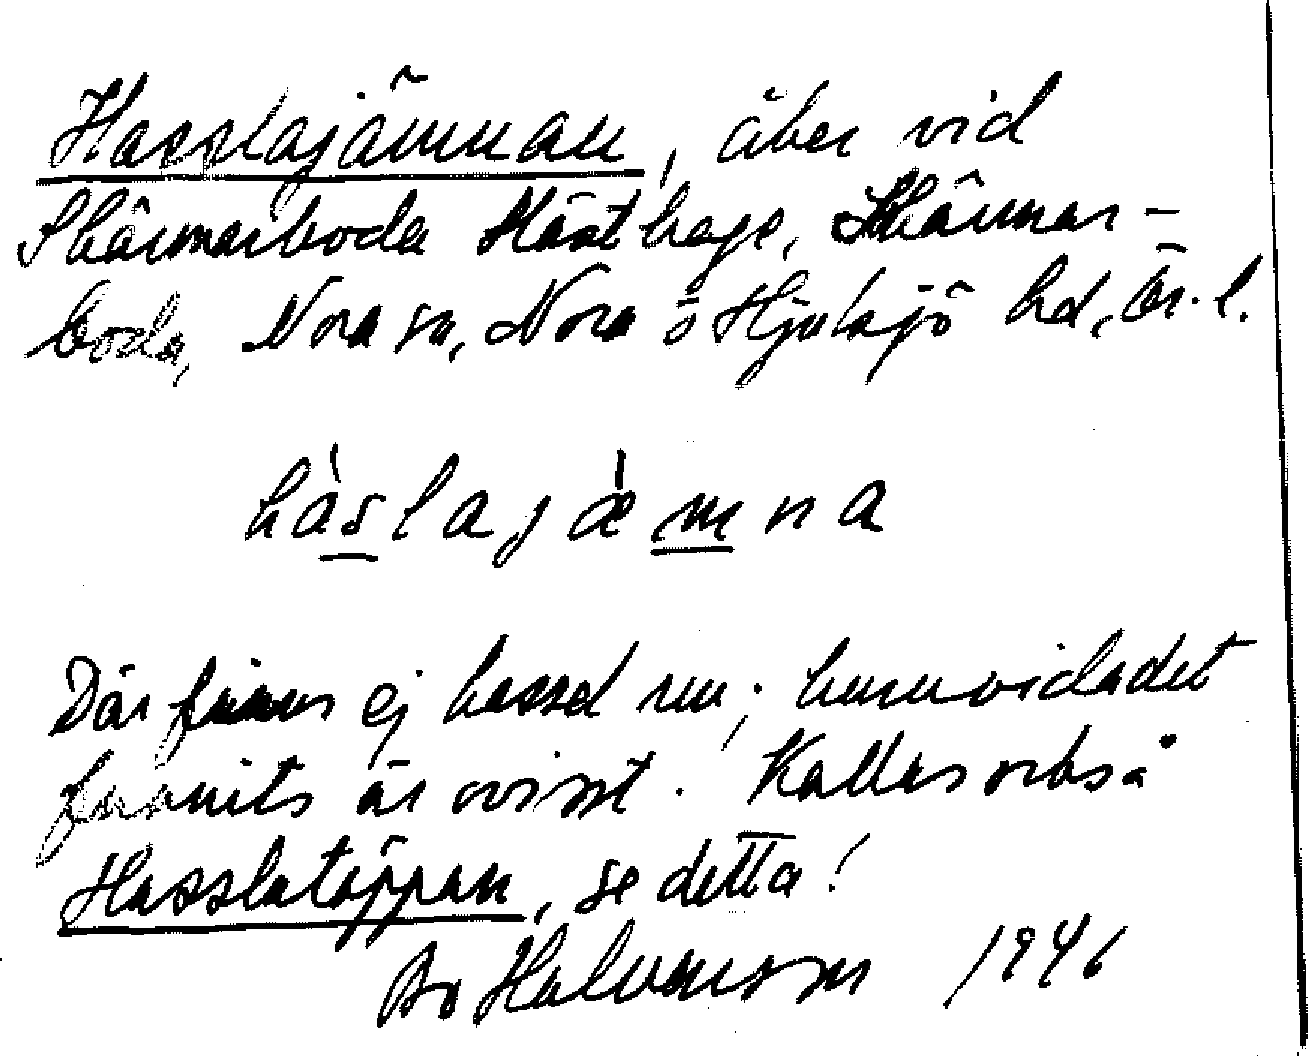 Hasslajämnan, åker vid
Skärmarboda Hästhage, Skärmar-
boda, Nora sn, Nora o Hjulsjö hd, Ör. l.
háslajæ̀mna
Där finns ej hassel nu; huruvida det
funnits är ovisst. Kallas också
Hasslatäppan, se detta!
Bo Halvarsson 1946